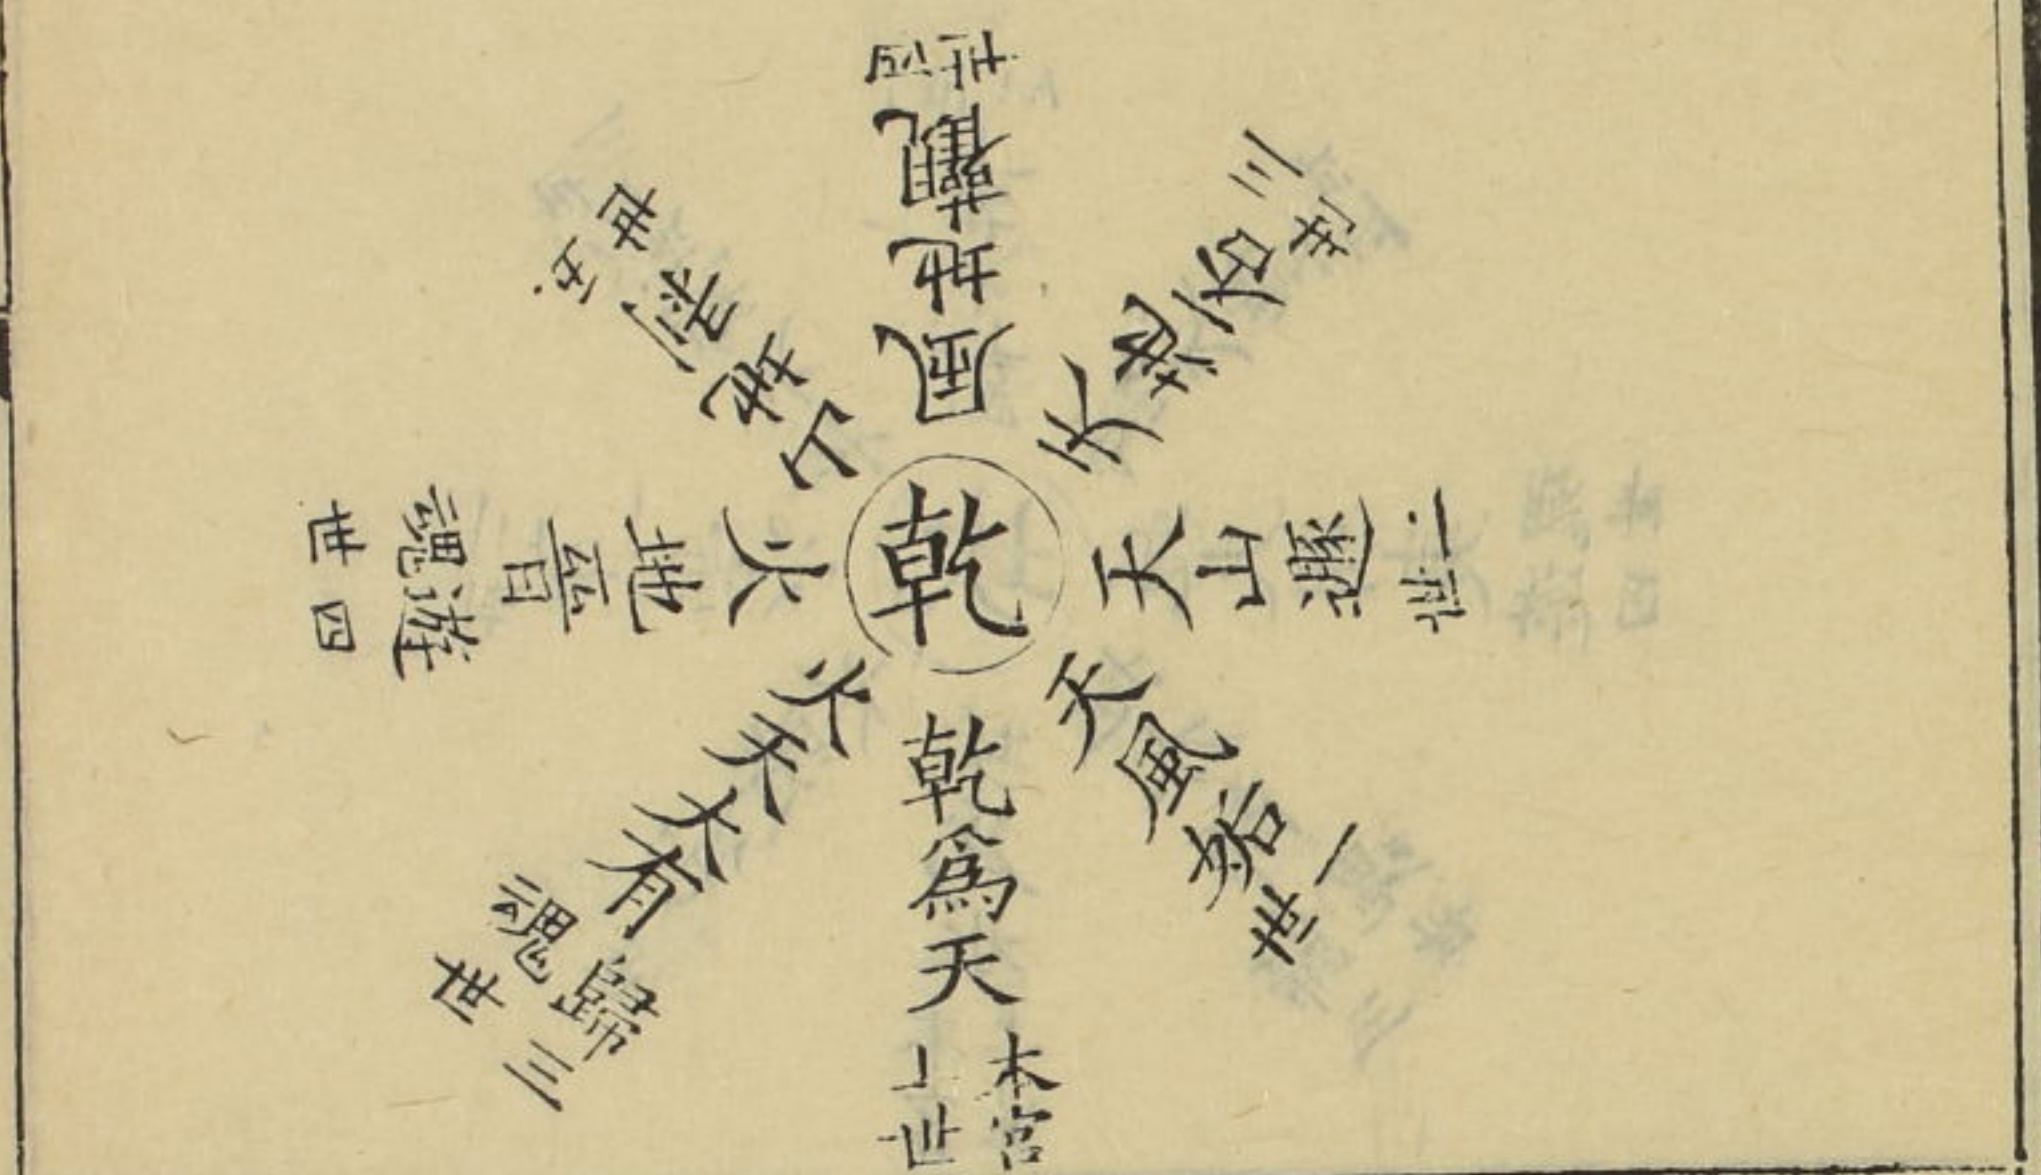 乾
乾爲天
本宮
上世
天風姤
一世
天山遯
二世
天地否
三世
風地觀
四世
山地剥
五世
火地晋
遊魂
四世
火天大有
歸魂
三世